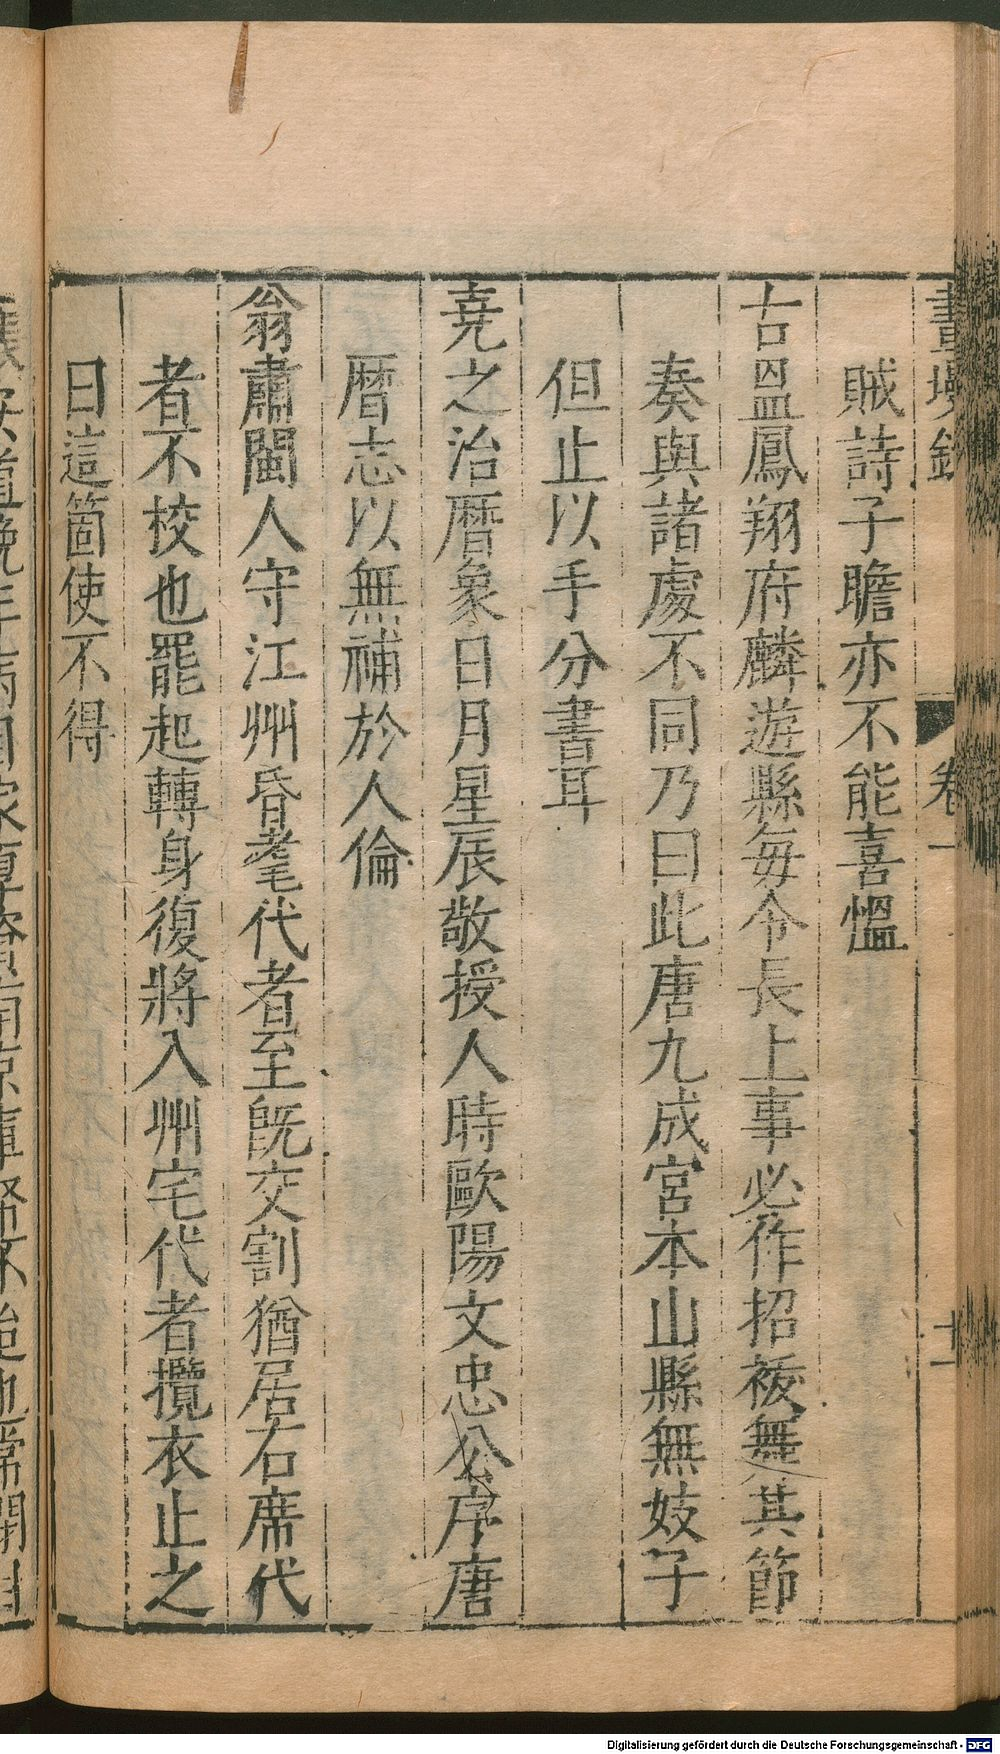 畫墁錄 卷一 十一
賊詩子瞻亦不能喜慍
古𥁕鳳翔府麟遊縣每令長上事必作招祓無其節
奏與諸處不同乃曰此唐九成宮本山縣無妓子
但止以手分書耳
堯之治曆象日月星辰敬授人時歐陽文忠公序唐
曆志以無補於人倫
翁肅閩人守江州昏耄代者至旣交割猶居右席代
者不校也罷起轉身復將入州宅代者攬衣止之
曰這箇使不得